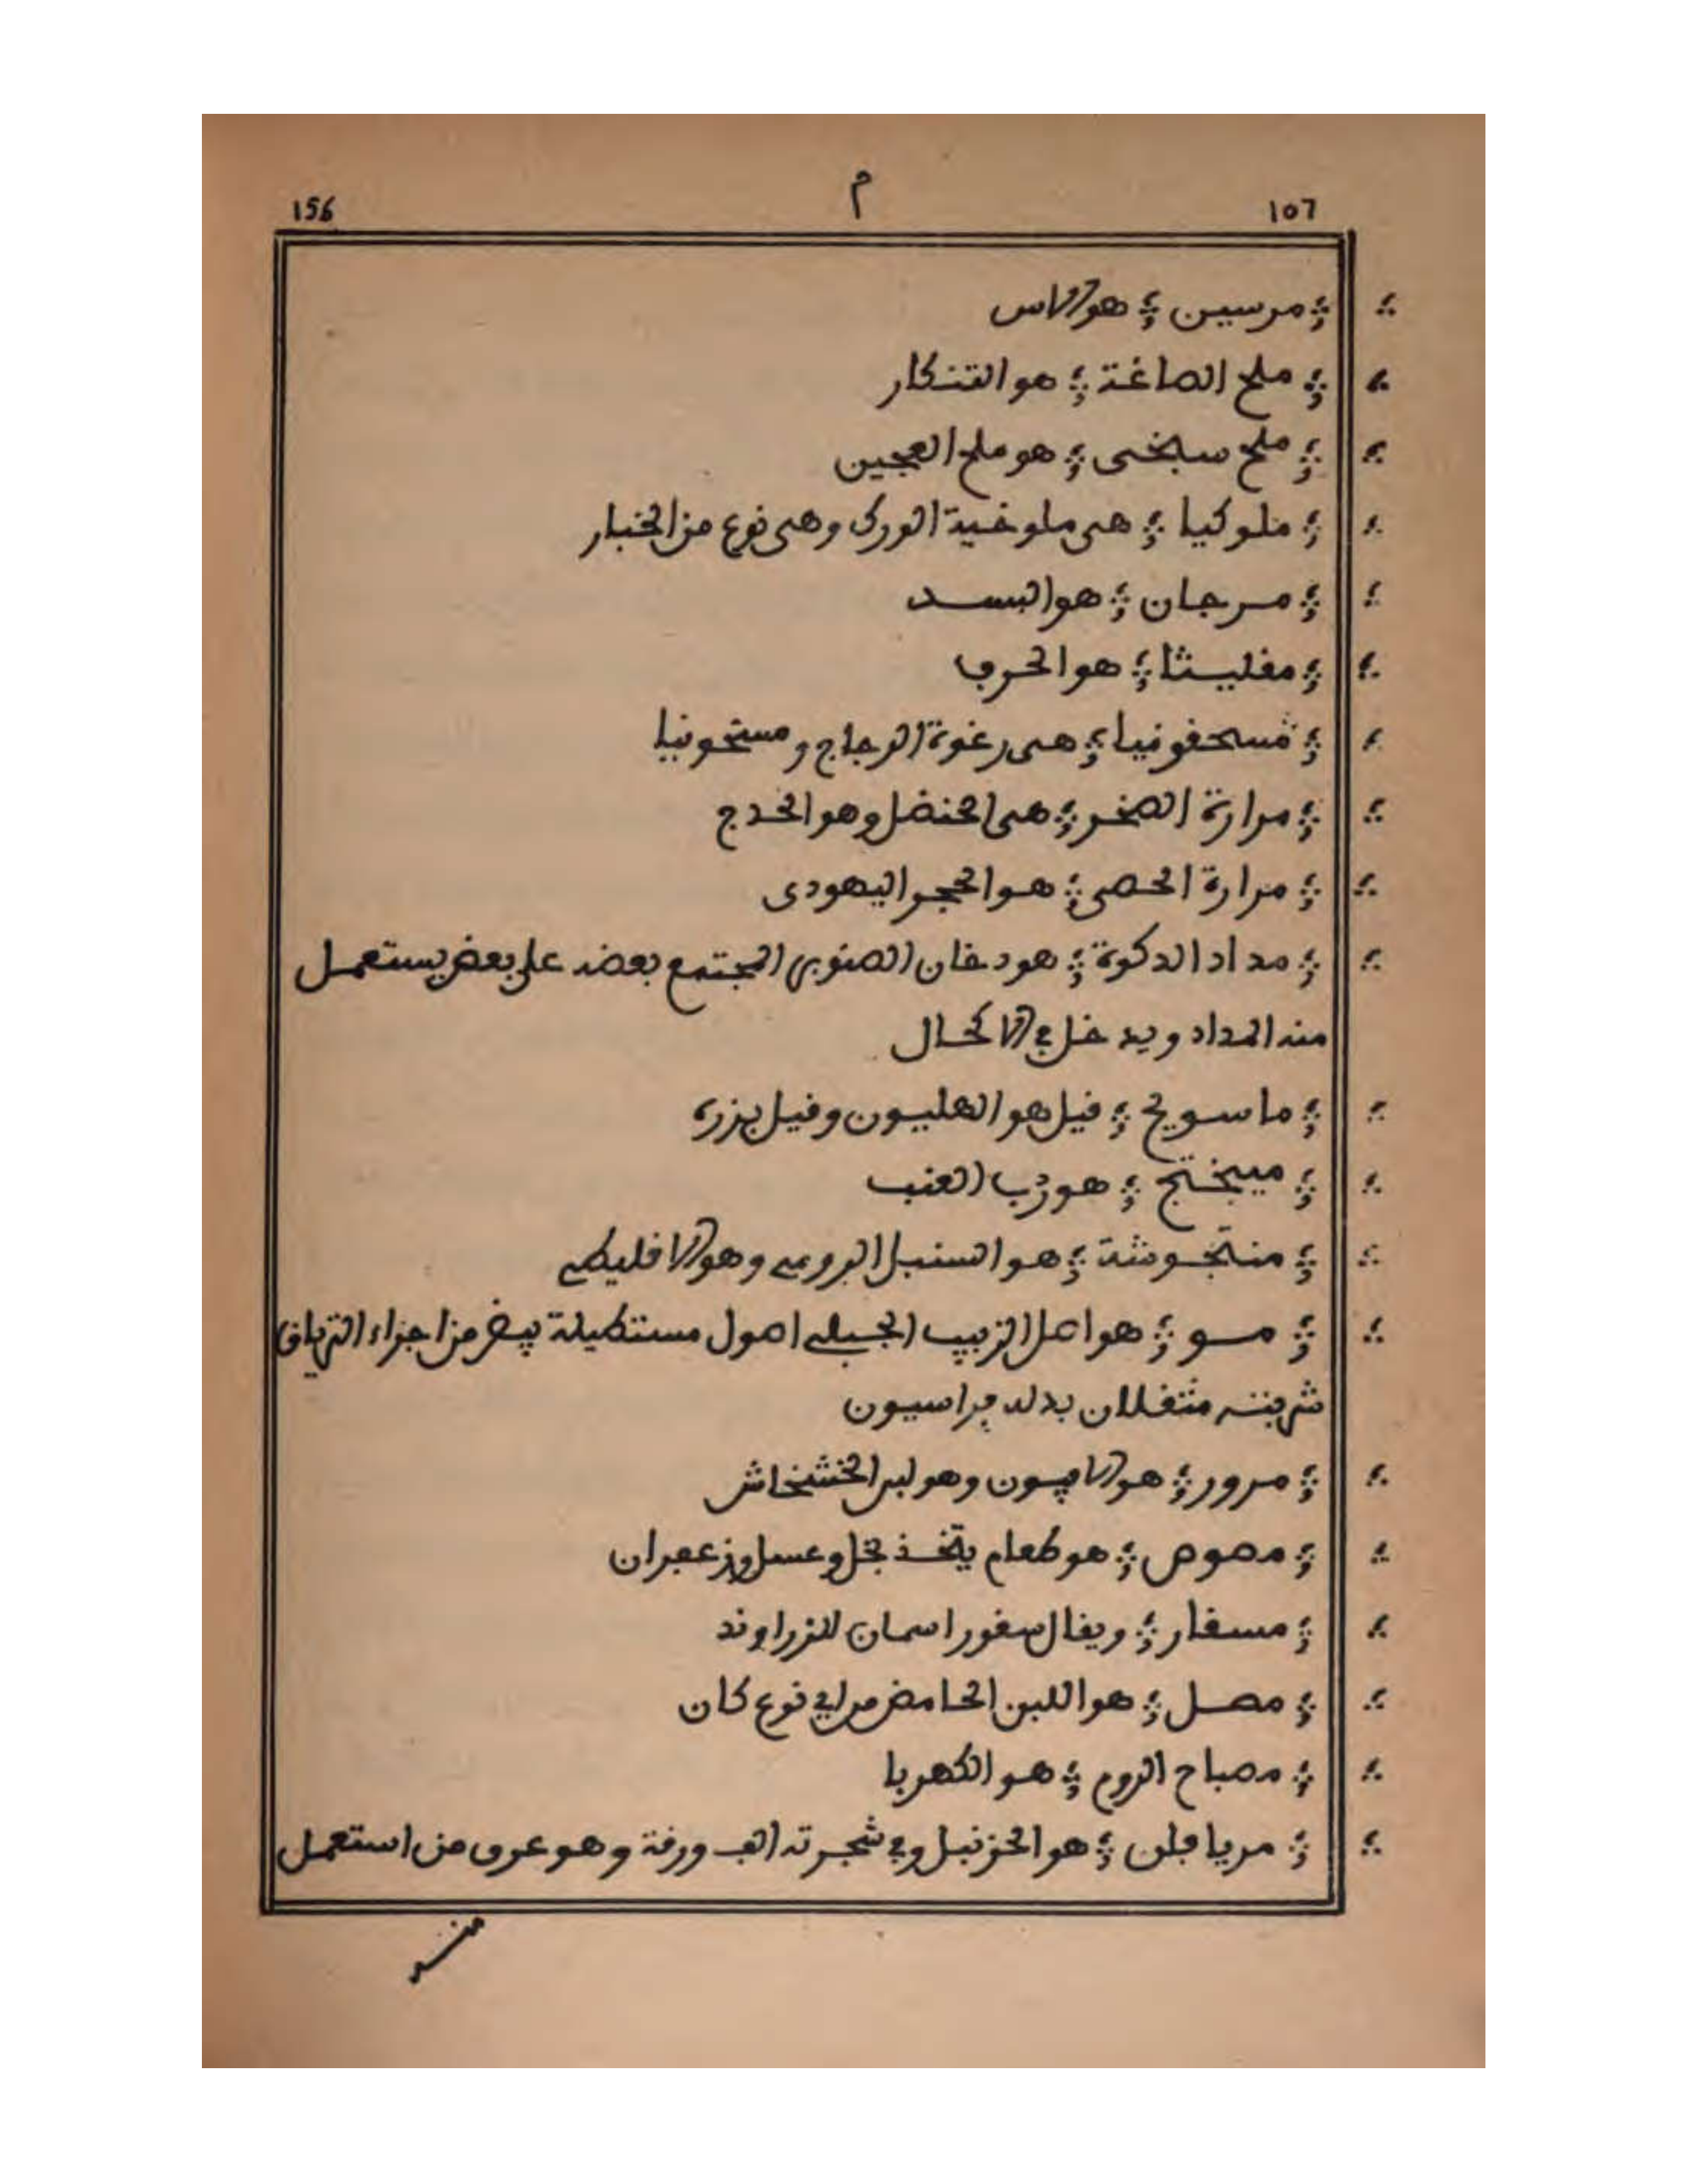 156 م 107
؞ مرسين ؞ هو الاس
؞ ملح الصاغة ؞ هو التنكار
؞ ملح سبخى ؞ هو ملح العجين
؞ ملوكيا ؞ هى ملوخية الورك وهى نوع من الخبار
؞ مرجان ؞ هو البسد
؞ مقليثا ؞ هو الحرف
؞ مسحقونيا ؞ هى رغوة الزجاج و مستحونيا
؞ مرارة الصخر ؞ هى الحنضل وهو الحدج
؞ مرارة الحصى ؞ هو الحجر اليهودى
؞ مداد الدكوة ؞ هو دخان الصنوبر المجتمع بعضه على بعض يستعمل
منه المداد ويدخل في الاكحال
؞ ماسويج ؞ قيل هو الهليون وقيل بزره
؞ ميبختج ؞ هو رب العنب
؞ منتجوشة ؞ هو السنبل الرومي وهو الاقليطي
؞ مو ؞ هو اصل الزبيب الجبلي اصول مستطيلة بيض من اجزاء الترياق
شربته مثقلان بدله براسيون
؞ مرور ؞ هو الافيون وهو لبن الخشخاش
؞ مصوص ؞ هو طعام يتخذ بخل وعسل وزعفران
؞ مسقار ؞ ويقال سقور اسمان للزراوند
؞ مصل ؞ هو اللبن الحامض من اي نوع كان
؞ مصباح الروم ؞ هو الكهربا
؞ مريافلن ؞ هو الحزنبل وفي شجرته الف ورقة وهو عرق من استعمل
منه